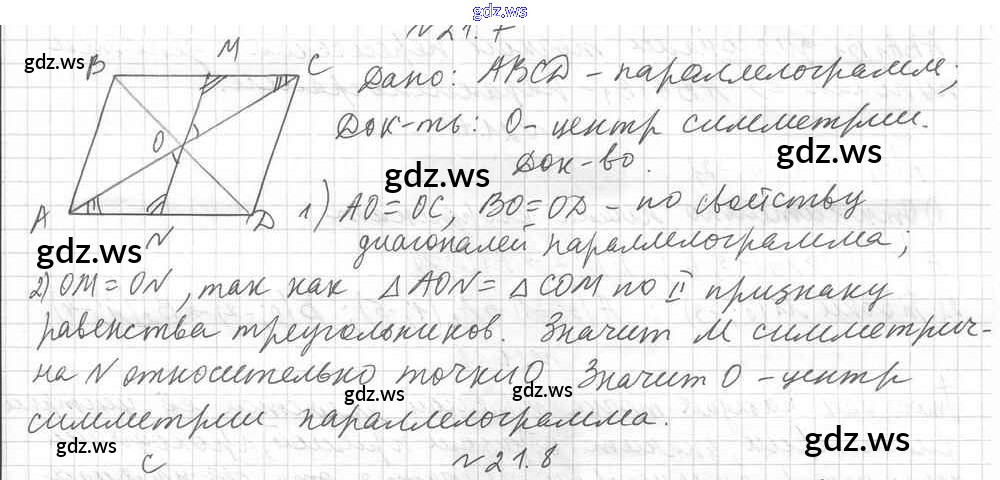 gdz.ws
№ 21.7
gdz.ws
B M C
Дано: ABCD – параллелограмм;
Док-ть: O – центр симметрии.
O
Док-во.
gdz.ws
gdz.ws
A N D
1) AO = OC, BO = OD – по свойству
gdz.ws
диагоналей параллелограмма;
2) OM = ON, так как △AON = △COM по II признаку
равенства треугольников. Значит M симметрич-
на N относительно точки O. Значит O – центр
gdz.ws
gdz.ws
симметрии параллелограмма.
gdz.ws
gdz.ws
C № 21.8